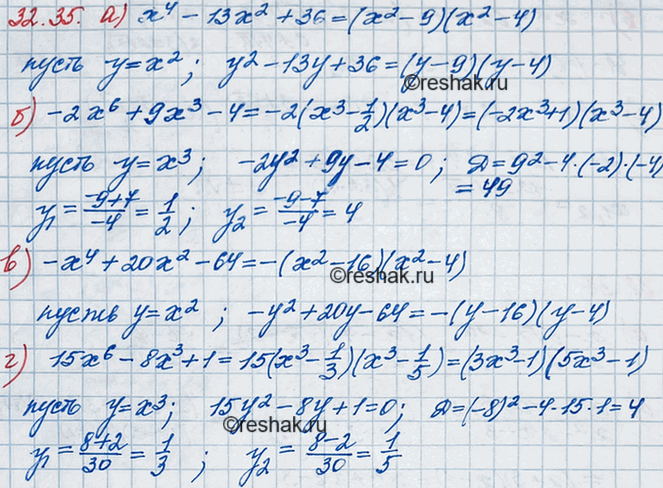 32.35. а) x⁴ − 13x² + 36 = (x² − 9)(x² − 4)
пусть y = x² ; y² − 13y + 36 = (y − 9)(y − 4)
©reshak.ru
б) −2x⁶ + 9x³ − 4 = −2(x³ − 1/2)(x³ − 4) = (−2x³ + 1)(x³ − 4)
пусть y = x³ ; −2y² + 9y − 4 = 0 ; Д = 9² − 4 · (−2) · (−4)
= 49
y₁ = (−9+7)/−4 = 1/2 ; y₂ = (−9−7)/−4 = 4
в) −x⁴ + 20x² − 64 = −(x² − 16)(x² − 4)
©reshak.ru
пусть y = x² ; −y² + 20y − 64 = −(y − 16)(y − 4)
г) 15x⁶ − 8x³ + 1 = 15(x³ − 1/3)(x³ − 1/5) = (3x³ − 1)(5x³ − 1)
пусть y = x³ ; 15y² − 8y + 1 = 0 ; Д = (−8)² − 4 · 15 · 1 = 4
©reshak.ru
y₁ = (8+2)/30 = 1/3 ; y₂ = (8−2)/30 = 1/5